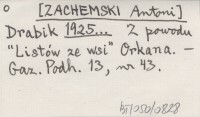 o [ZACHEMSKI Antoni]
Drabik 1925... Z powodu
"Listów ze wsi" Orkana. –
Gaz. Podh. 13, nr 43.
bf/050/0828